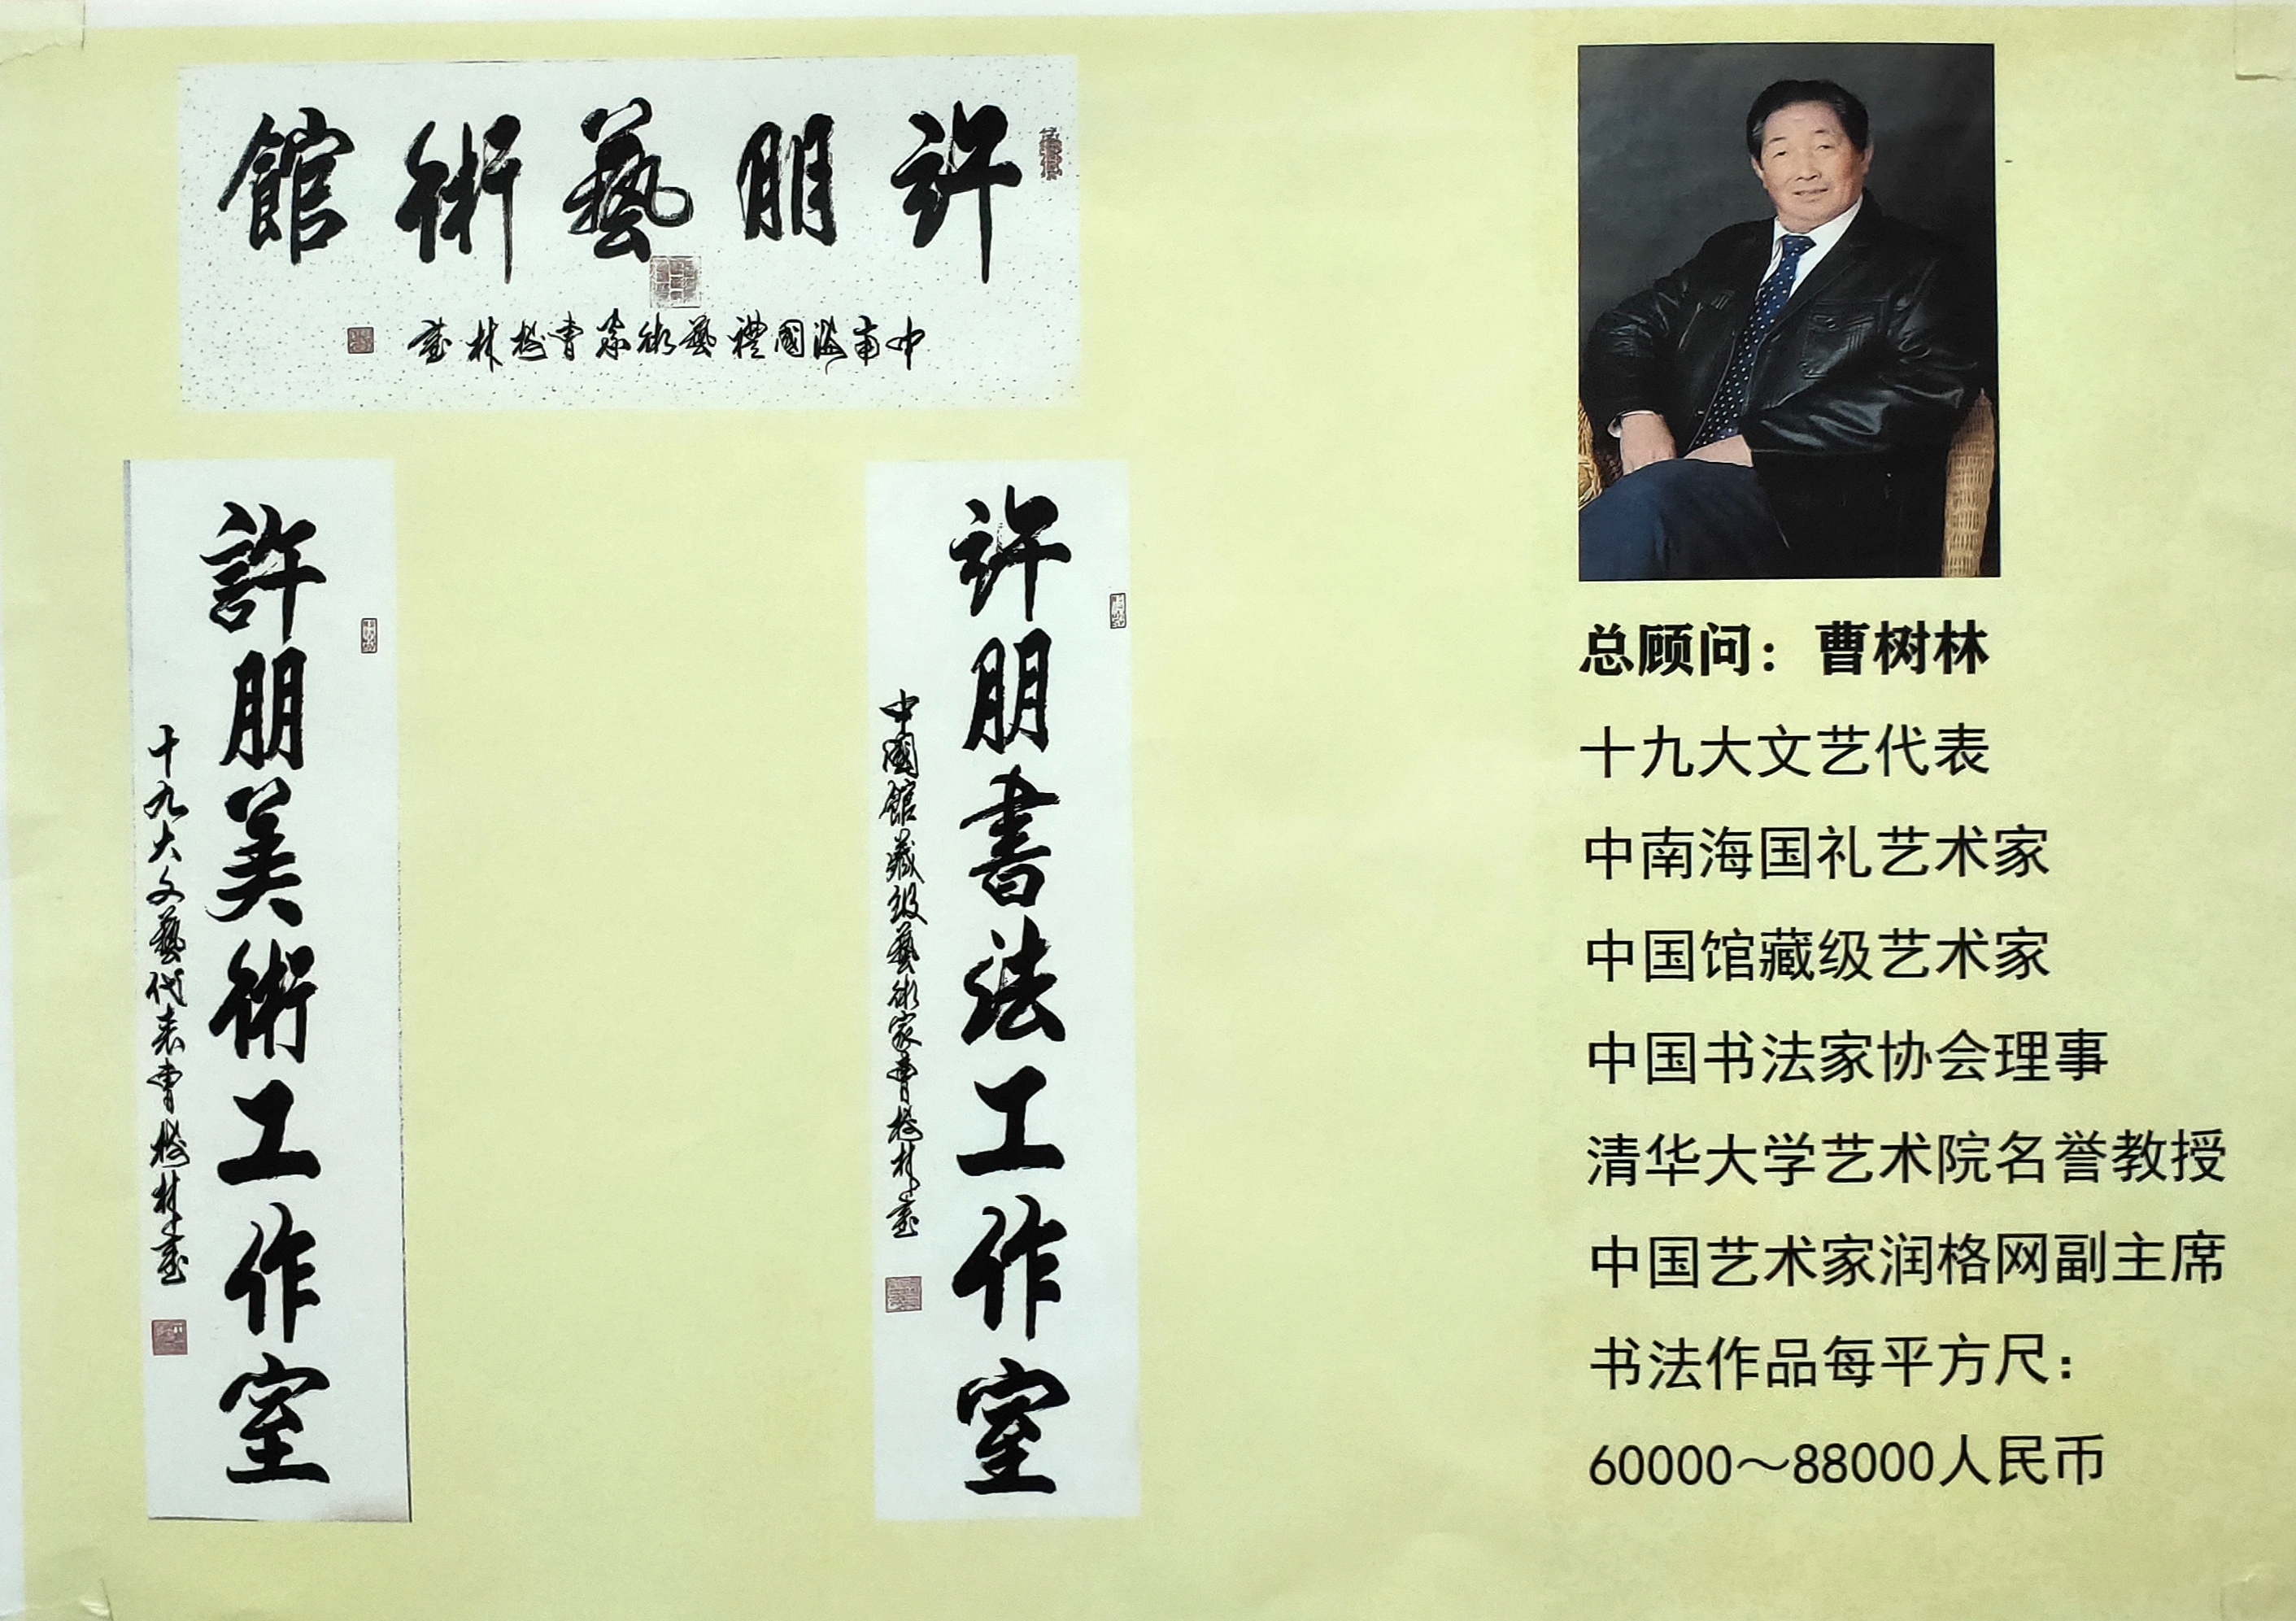 許朋藝術館
中南海國禮藝術家曹樹林書
許朋美術工作室
十九大文藝代表曹樹林書
許朋書法工作室
中國館藏級藝術家曹樹林書
总顾问：曹树林
十九大文艺代表
中南海国礼艺术家
中国馆藏级艺术家
中国书法家协会理事
清华大学艺术院名誉教授
中国艺术家润格网副主席
书法作品每平方尺：
60000～88000人民币